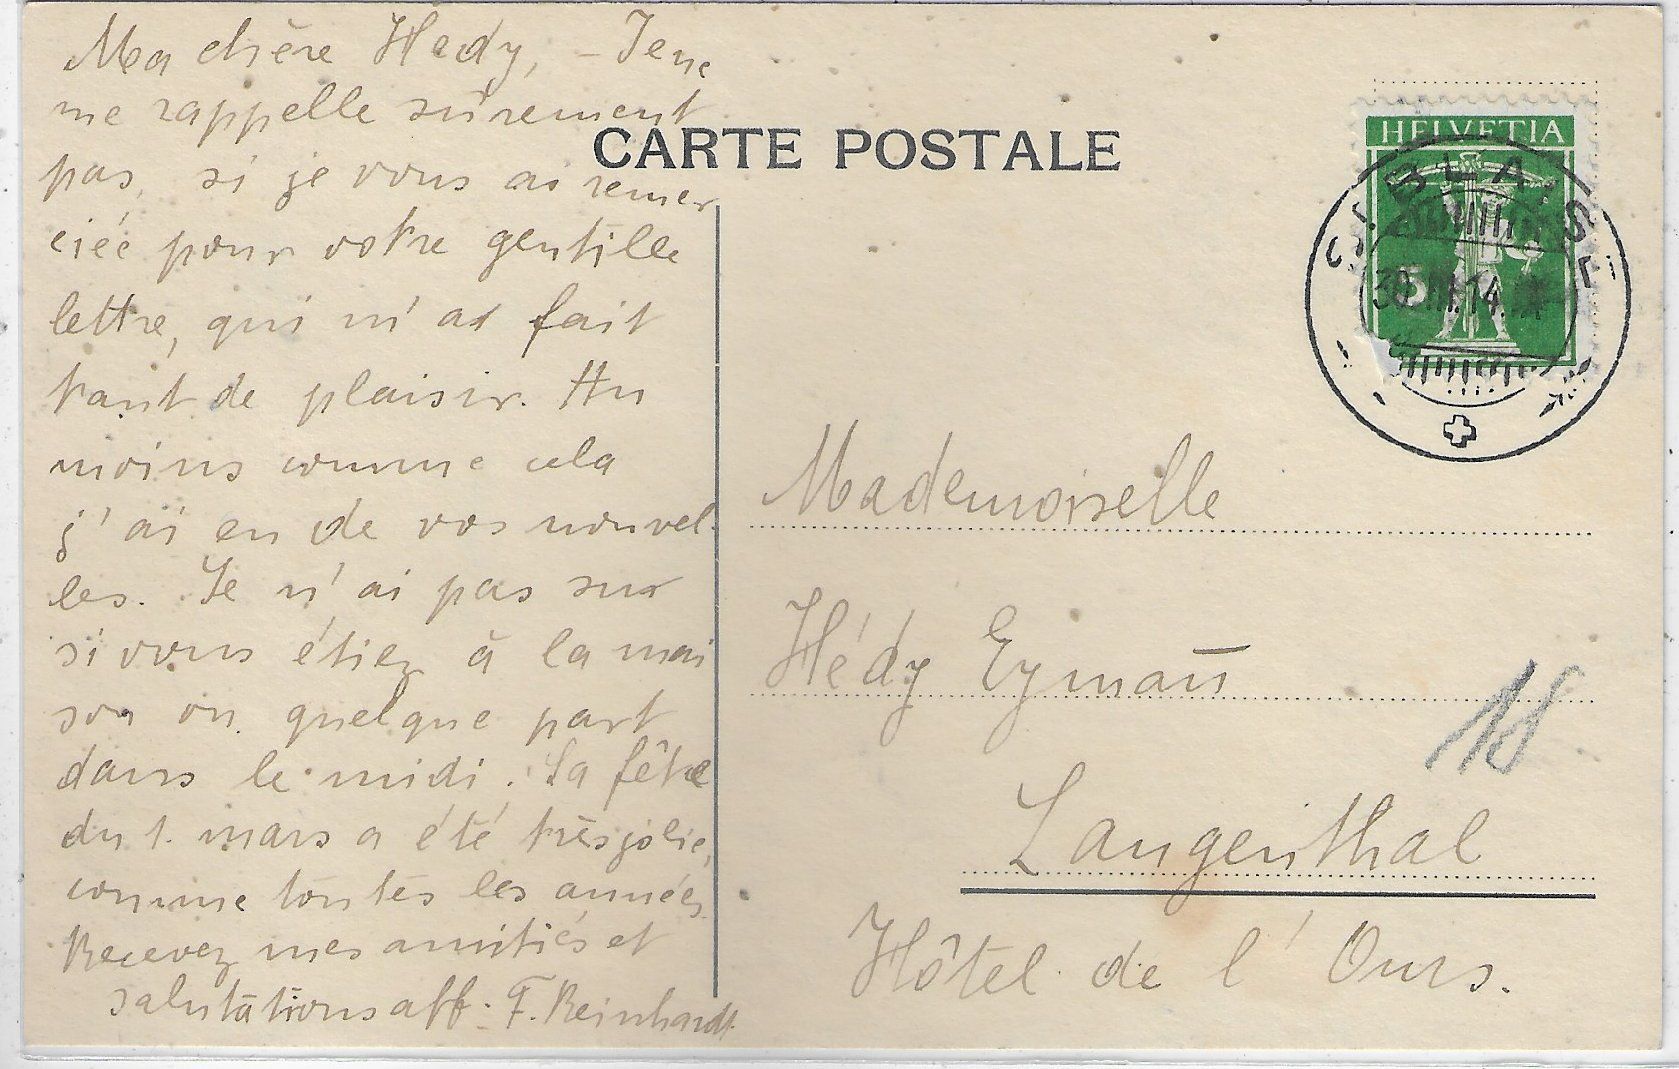 Ma chère Hedy, – Je ne
me rappelle sûrement
pas, si je vous ai remer
ciée pour votre gentille
lettre, qui m'as fait
tant de plaisir. Au
moins comme cela
j'ai eu de vos nouvel-
les. Je n'ai pas sur
si vous étiez à la mai
son ou quelque part
dans le midi. La fête
du 1. mars a été très jolie,
comme toutes les années.
Recevez mes amitiés et
salutations aff. F. Reinhardt
CARTE POSTALE
HELVETIA
5
ST. BLAISE
30.III.14.
Mademoiselle
Hédy Eymañ
18
Langenthal
Hôtel de l'Ours.